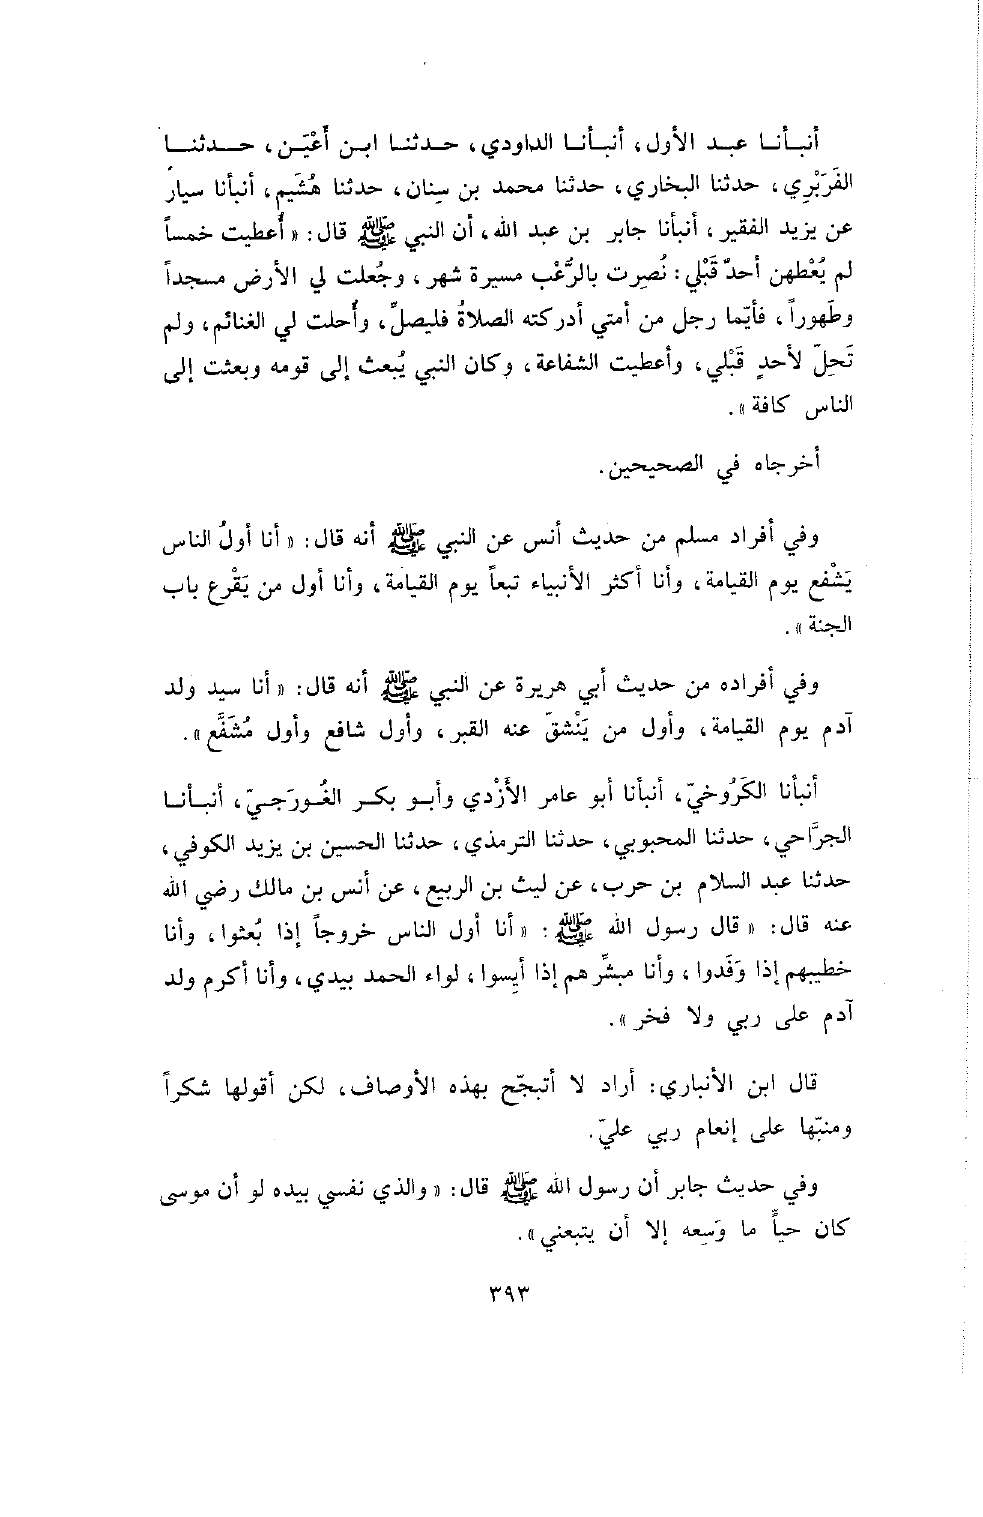 أنبأنا عبد الأول، أنبأنا الداودي، حدثنا ابن أَعْيَن، حدثنا
الفَرَبْرِي، حدثنا البخاري، حدثنا محمد بن سِنان، حدثنا هُشَيم، أنبأنا سيار
عن يزيد الفقير، أنبأنا جابر بن عبد الله، أن النبي ﷺ قال: « أُعطيت خمساً
لم يُعْطهن أحدٌ قَبْلي: نُصِرت بالرُّعْب مسيرة شهر، وجُعلت لي الأرض مسجداً
وطَهوراً، فأيّما رجل من أمتي أدركته الصلاةُ فليصلِّ، وأُحلت لي الغنائم، ولم
تَحِلّ لأحدٍ قَبْلي، وأعطيت الشفاعة، وكان النبي يُبعث إلى قومه وبعثت إلى
الناس كافة ».
أخرجاه في الصحيحين.
وفي أفراد مسلم من حديث أنس عن النبي ﷺ أنه قال: « أنا أولُ الناس
يَشْفع يوم القيامة، وأنا أكثر الأنبياء تبعاً يوم القيامة، وأنا أول من يَقْرع باب
الجنة ».
وفي أفراده من حديث أبي هريرة عن النبي ﷺ أنه قال: « أنا سيد ولد
آدم يوم القيامة، وأول من يَنْشقّ عنه القبر، وأول شافع وأول مُشَفَّع ».
أنبأنا الكَرُوخيّ، أنبأنا أبو عامر الأَزْدي وأبو بكر الغُورَجيّ، أنبأنا
الجرَّاحي، حدثنا المحبوبي، حدثنا الترمذي، حدثنا الحسين بن يزيد الكوفي،
حدثنا عبد السلام بن حرب، عن ليث بن الربيع، عن أنس بن مالك رضي الله
عنه قال: « قال رسول الله ﷺ: « أنا أول الناس خروجاً إذا بُعثوا، وأنا
خطيبهم إذا وَفَدوا، وأنا مبشِّرهم إذا أيسوا، لواء الحمد بيدي، وأنا أكرم ولد
آدم على ربي ولا فخر ».
قال ابن الأنباري: أراد لا أتبجّح بهذه الأوصاف، لكن أقولها شكراً
ومنبّها على إنعام ربي عليّ.
وفي حديث جابر أن رسول الله ﷺ قال: « والذي نفسي بيده لو أن موسى
كان حياًّ ما وَسِعه إلا أن يتبعني ».
٣٩٣